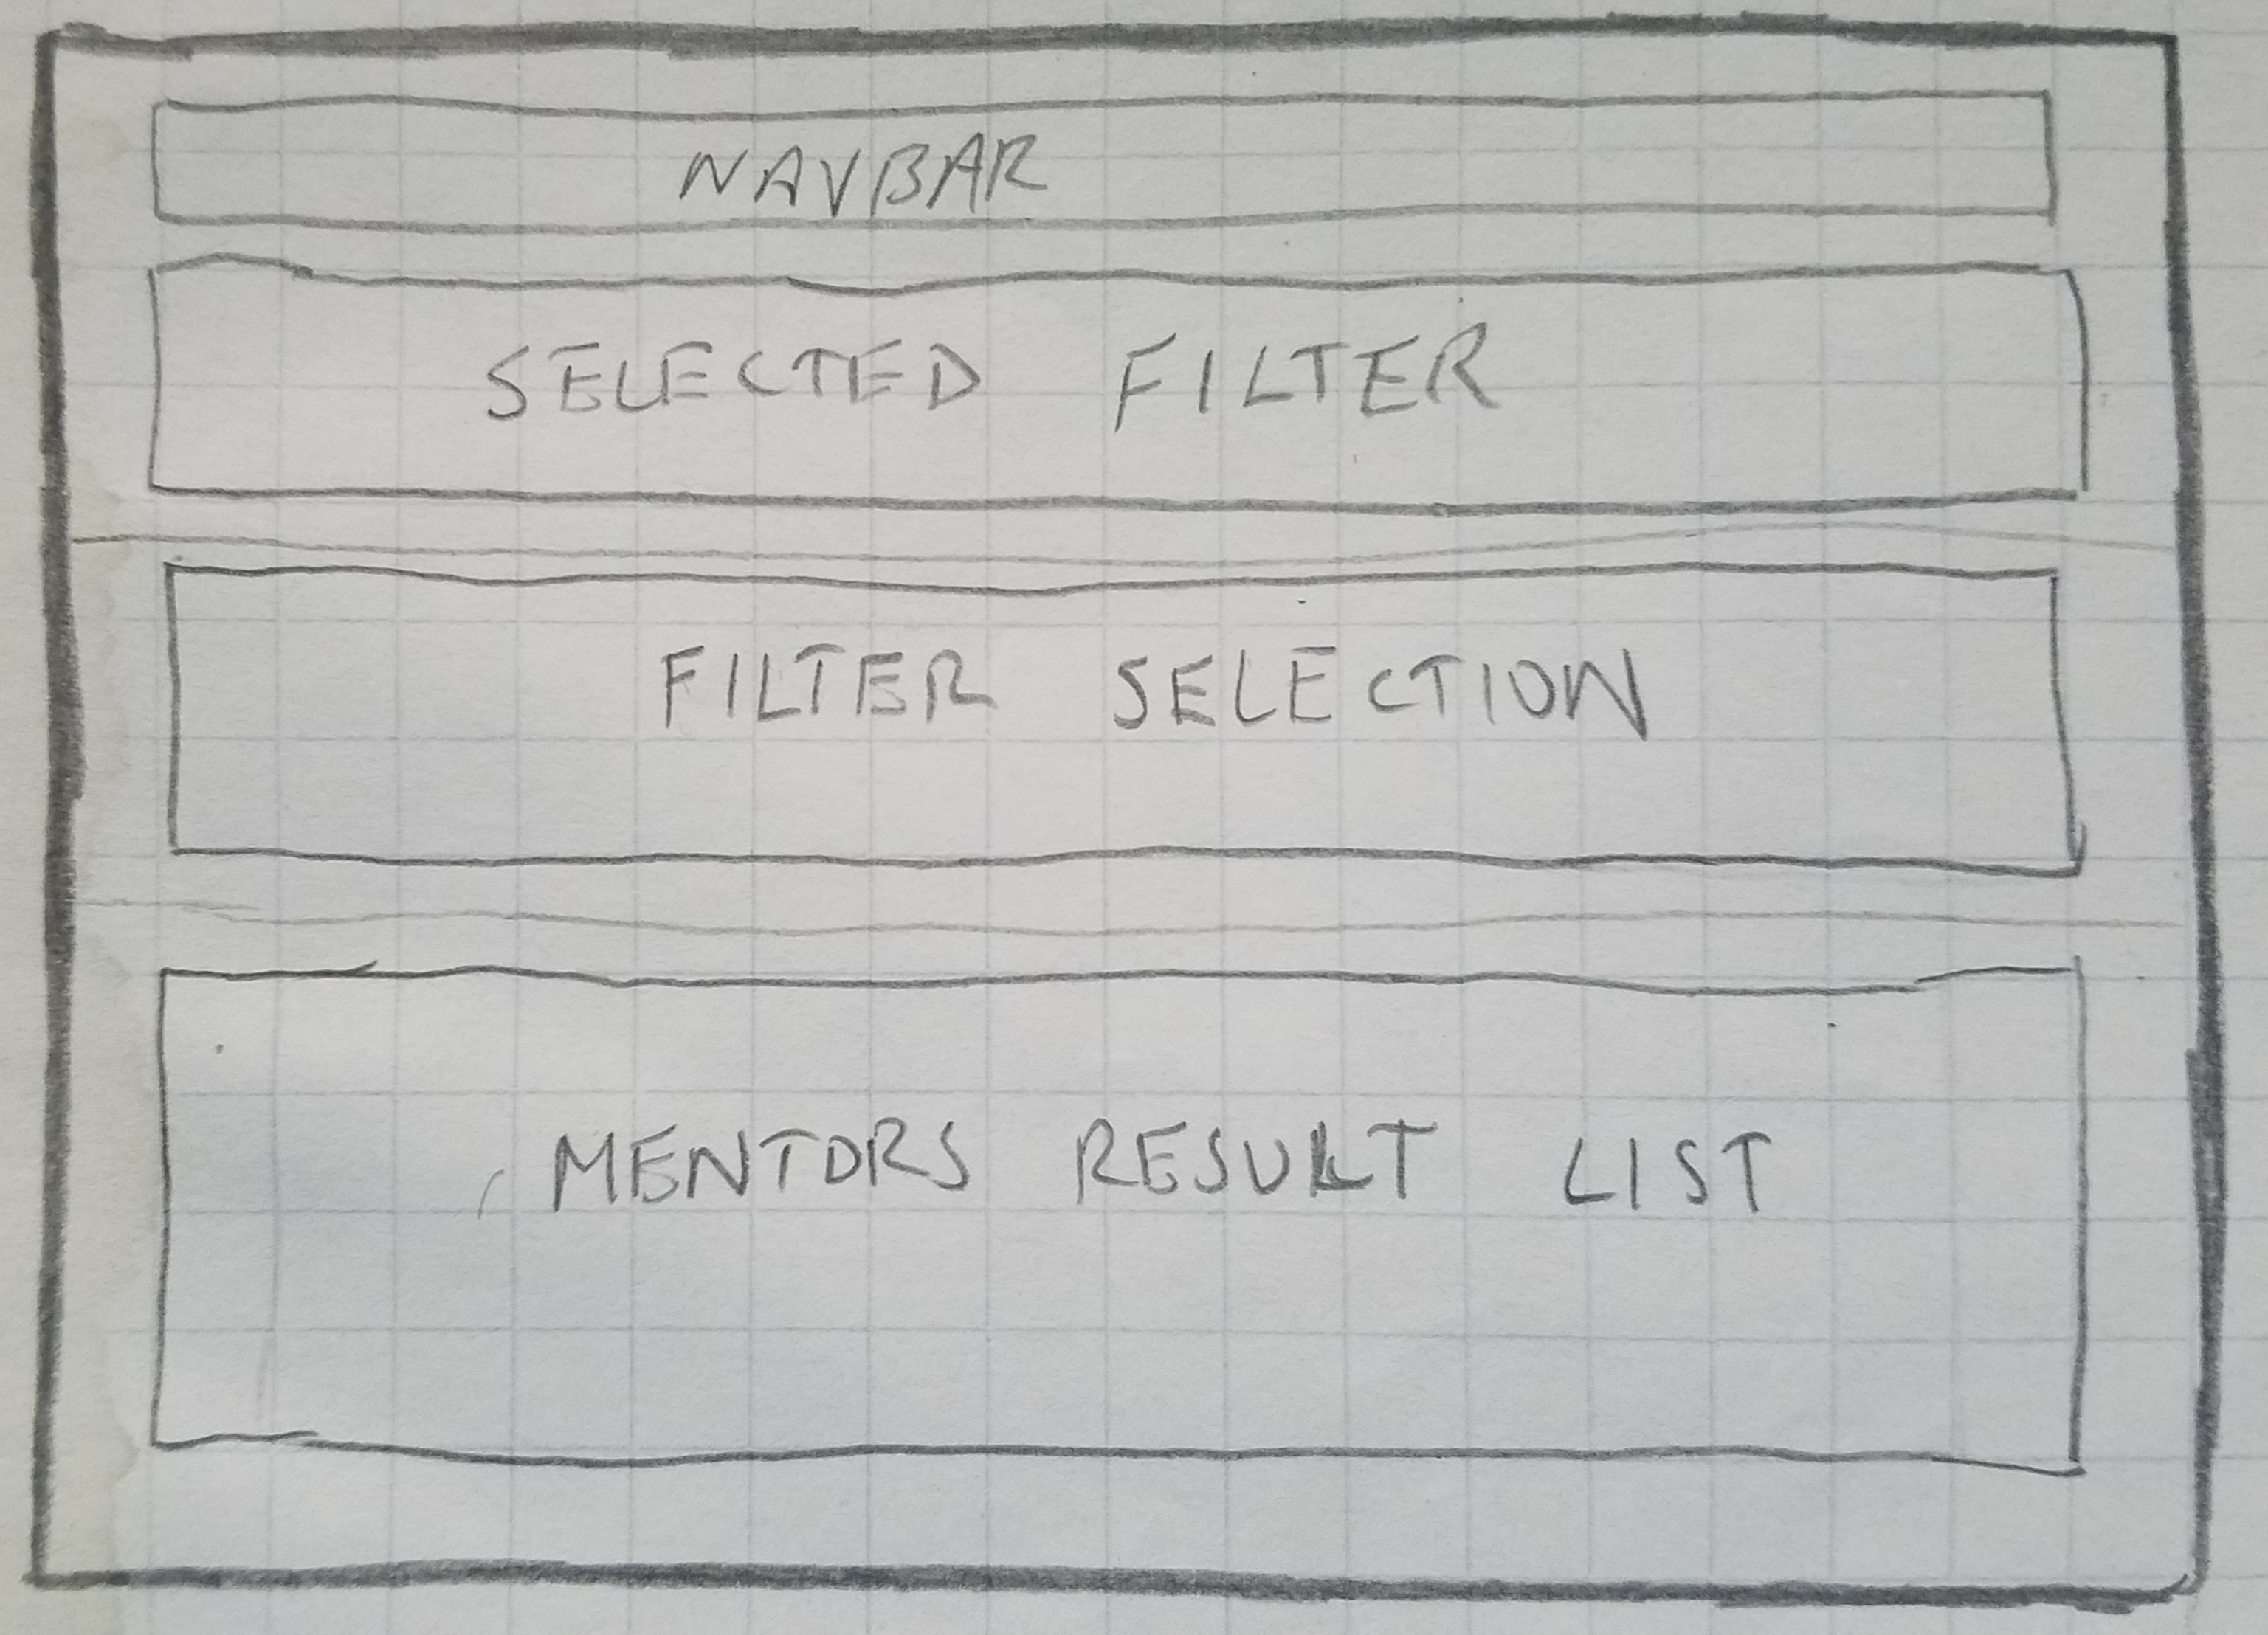 NAVBAR
SELECTED FILTER
FILTER SELECTION
MENTORS RESULT LIST